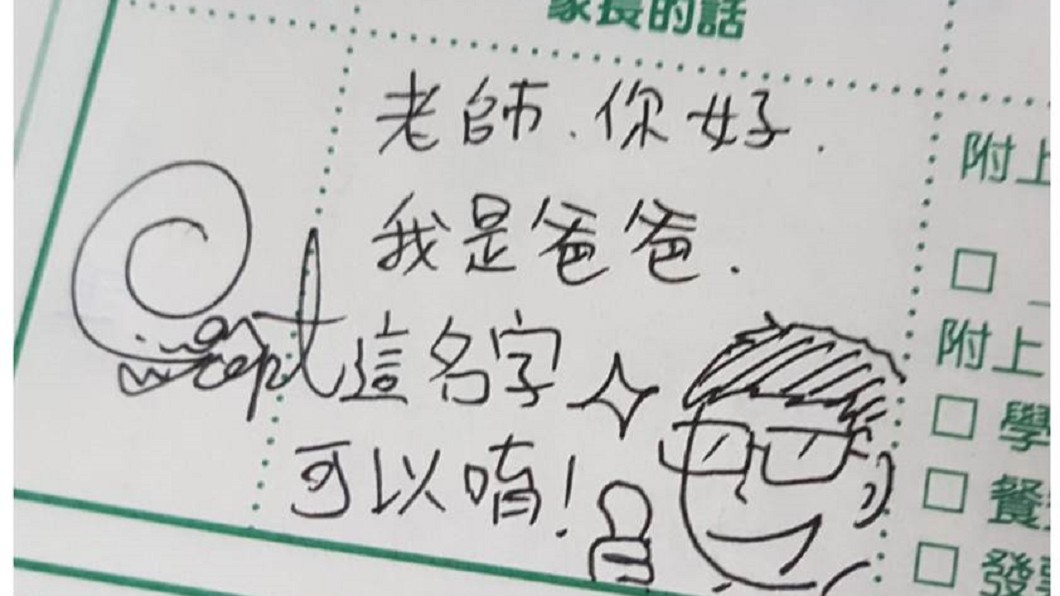 家長的話
老師.你好.
我是爸爸.
這名字
可以唷!
附上
□
附上
□ 學
□ 餐
□ 發